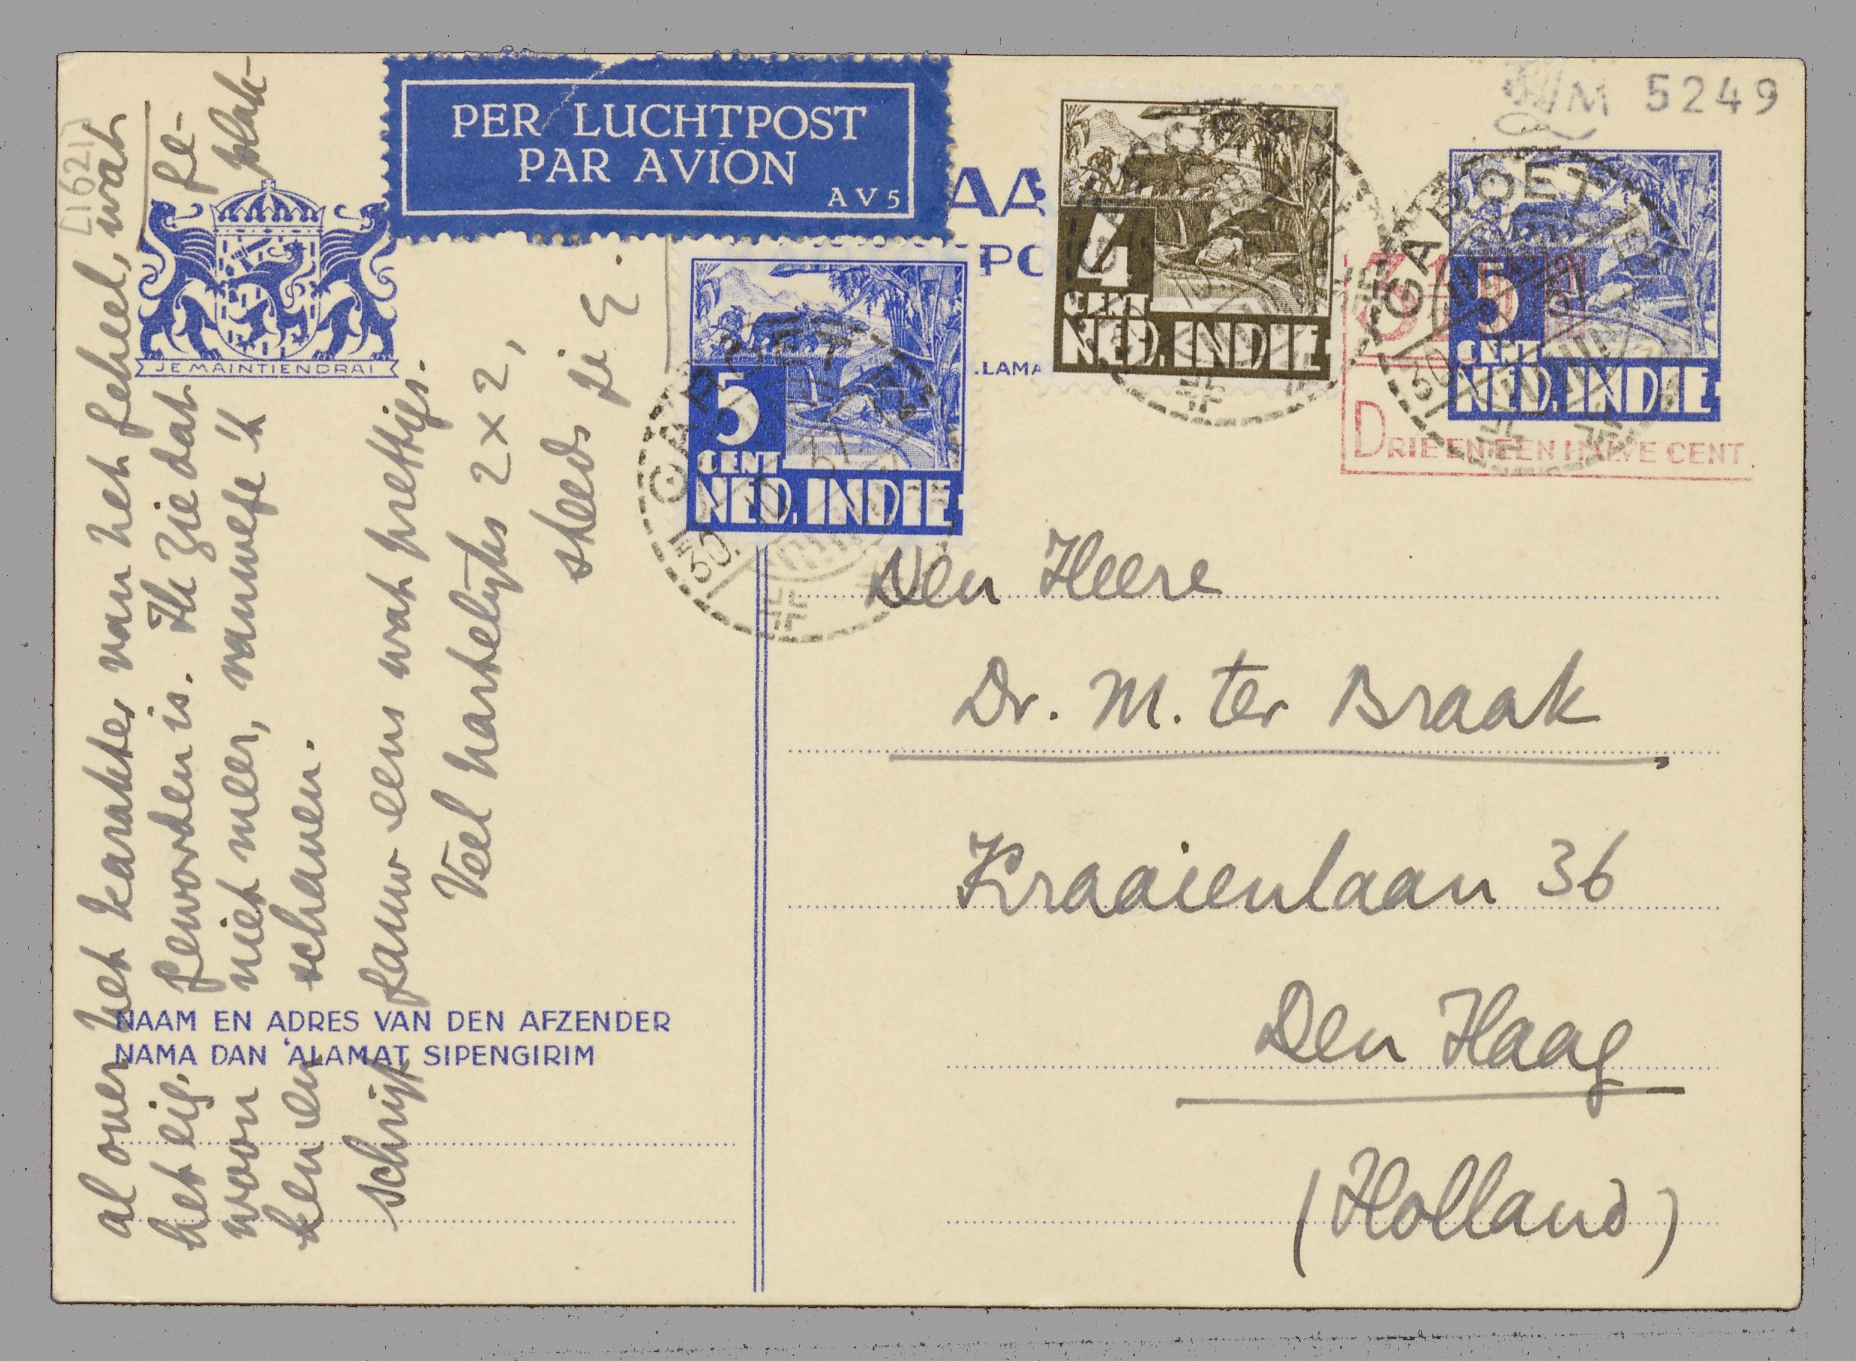 PER LUCHTPOST
PAR AVION
AV5
5249
[1621]
JE MAINTIENDRAI
AA
PO
LAMA
4
CENT
NED. INDIE
5
CENT
NED. INDIE
5
CENT
NED. INDIE
GAROET
GAROET
30
37
DRIE EN EEN HALVE CENT
al over het karakter van het geheel, wat
het eig. geworden is. Ik zie dat ge-
woon niet meer, vanwege 't plak-
ken en schamen.
schrijf gauw eens wat prettigs.
Veel hartelijks 2 x 2,
steeds je E.
NAAM EN ADRES VAN DEN AFZENDER
NAMA DAN 'ALAMAT SIPENGIRIM
Den Heere
Dr. M. ter Braak
Kraaienlaan 36
Den Haag
(Holland)